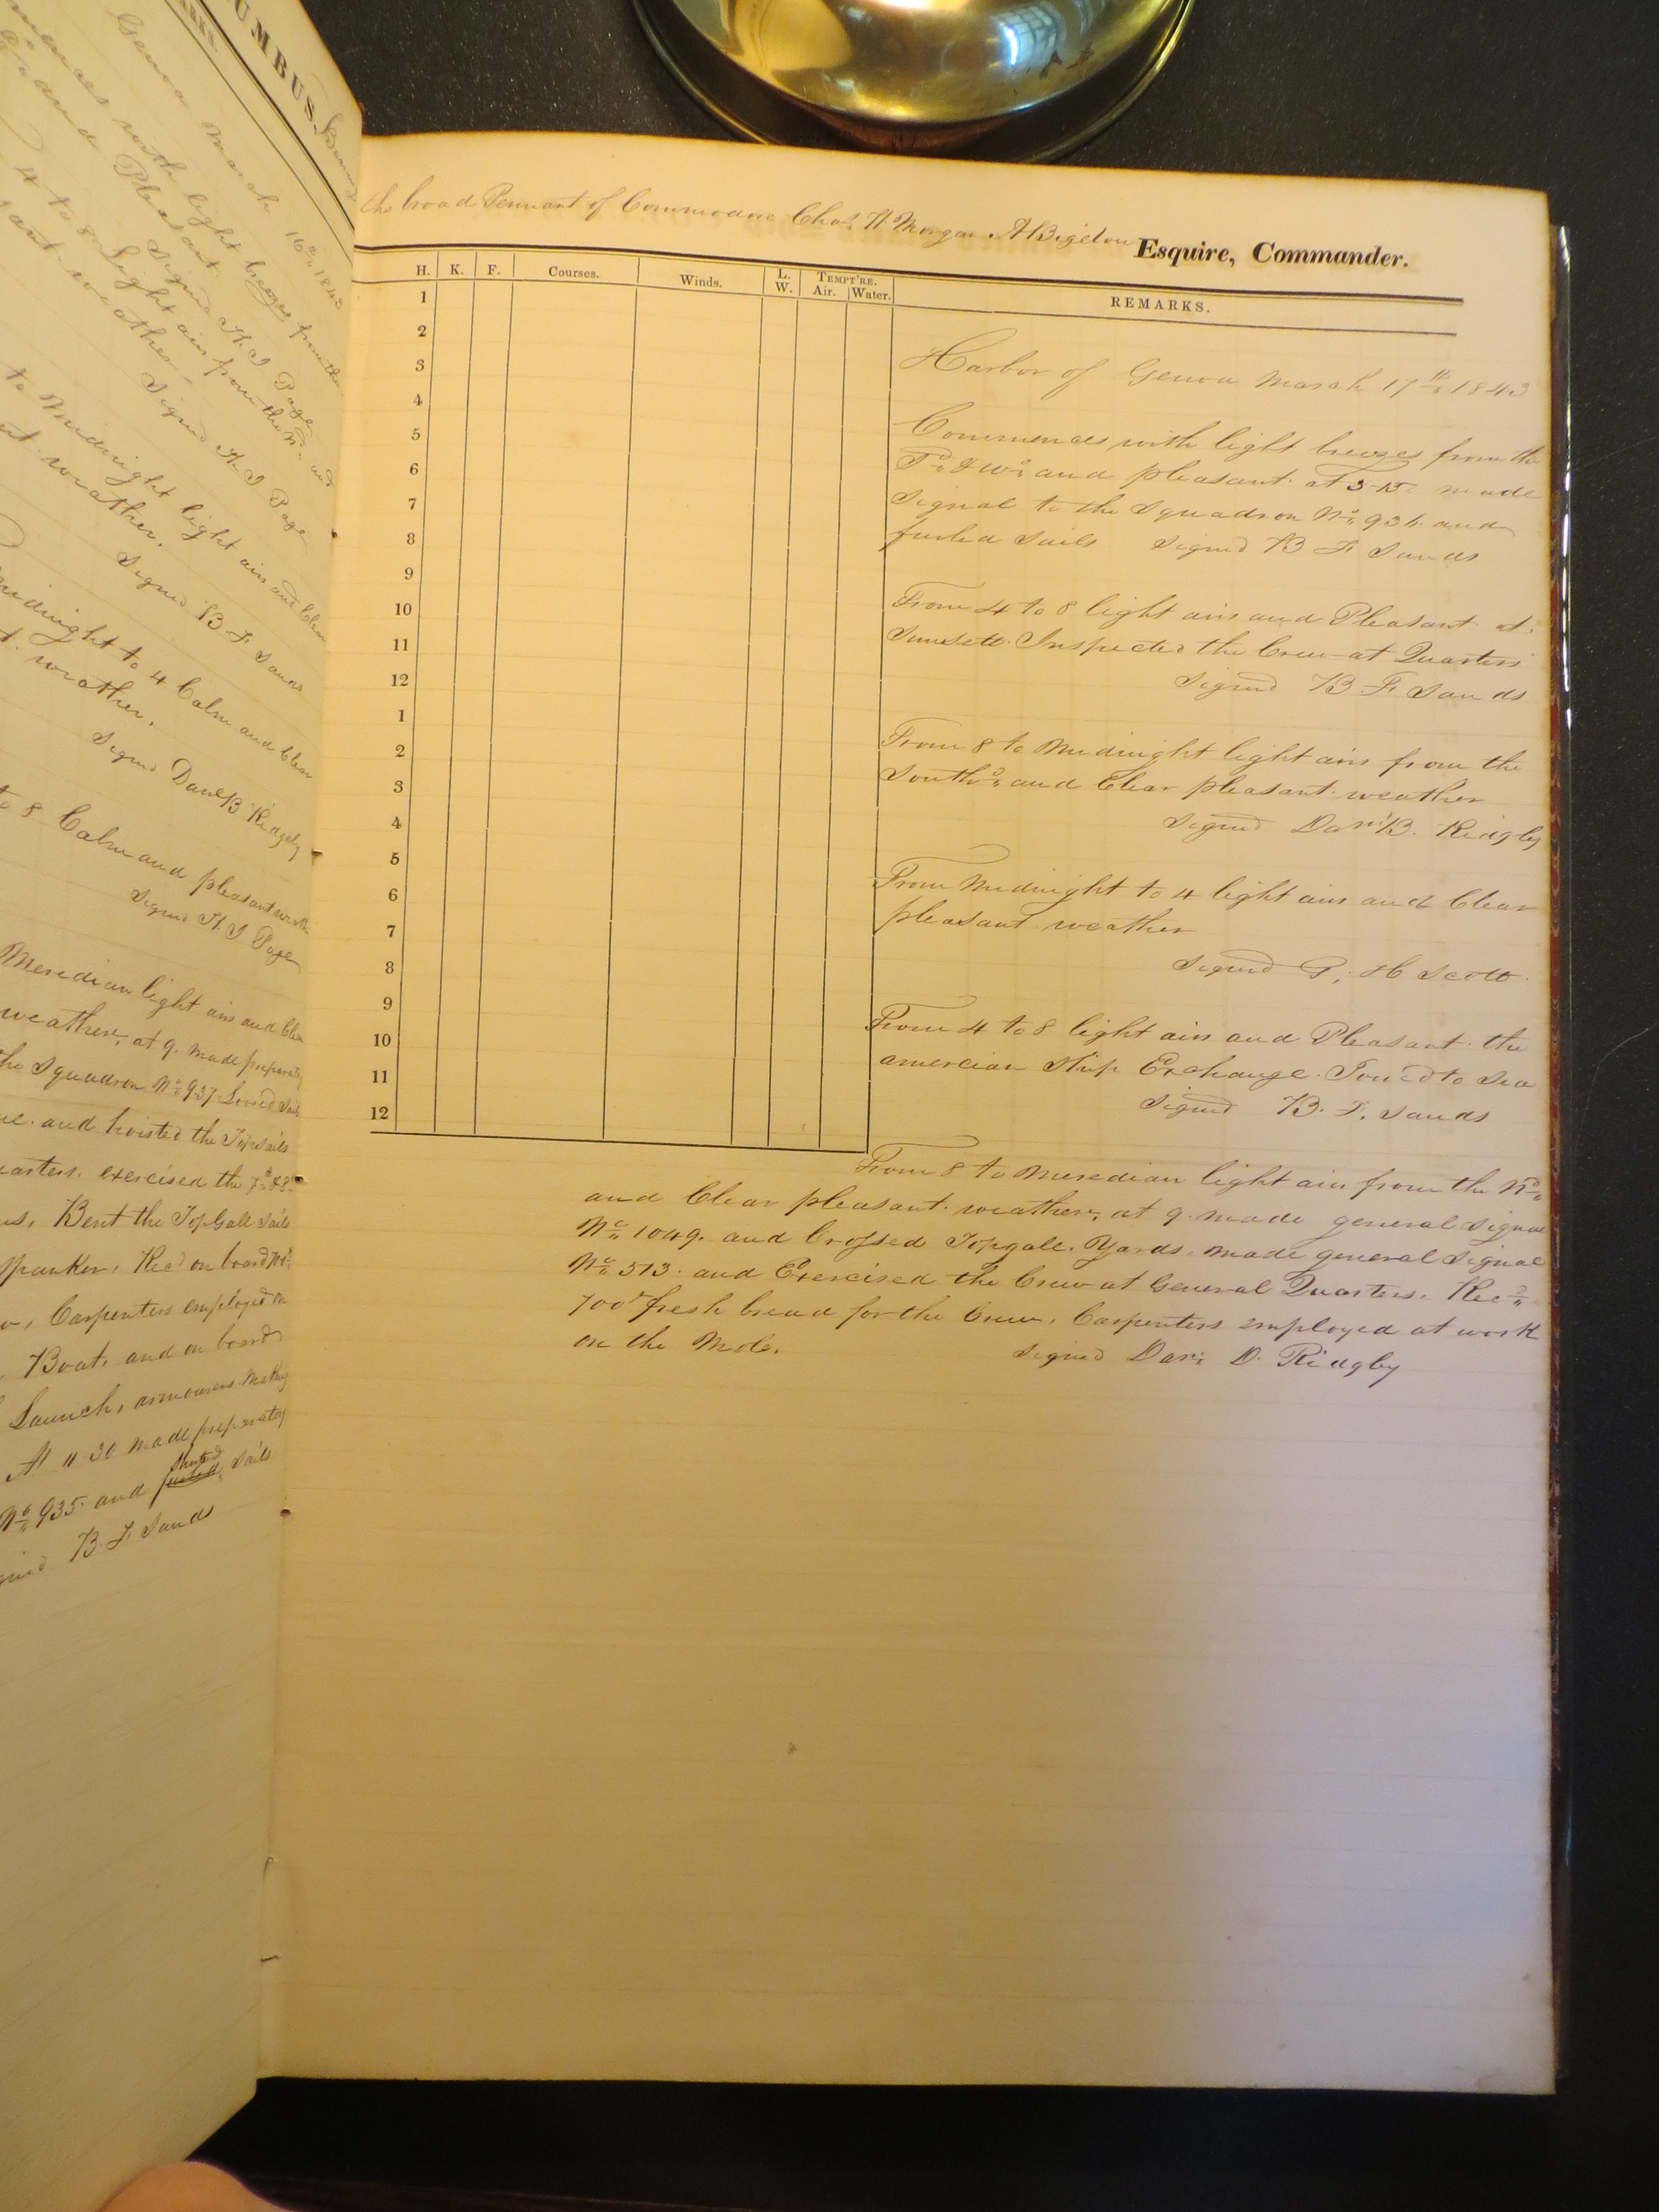 UMBUS.
Genoa March 16th 1843
mences with light breezes from the
and Pleasant
Signed H. J Page
4 to 8 Light airs from the Nd. and
ant weather.
Signed H. J Page
to Midnight light airs and Clear
nt weather.
Signed B. F. Sands
midnight to 4 Calm and Clear
t. weather.
Signed Danl B. Ridgely
to 8 Calm and pleasant weath
Signed H J Page
Meredian light airs and Clear
weather, at 9. made preparatory
the Squadron No 937 Loosed Sails
ue. and hoisted the Topsails
uarters. exercised the 7th & 8th
us, Bent the TopGall Sails
spanker, Recd on board
Carpenters employed on
Boats and on board
Launch, armourers making
At 11 30 made preparatory
No 935. and furled Sails
gned B. F. Sands
the broad Pennant of Commodore Chas. W. Morgan A Bigelow Esquire, Commander.
H. K. F. Courses. Winds. L. W. TEMPT'RE. Air. Water. REMARKS.
1
2
3
4
5
6
7
8
9
10
11
12
1
2
3
4
5
6
7
8
9
10
11
12
Harbor of Genoa March 17th 1843
Commences with light breezes from the
Sd. & Wd. and pleasant. at 3-15. made
Signal to the Squadron No. 934. and
furled Sails Signed B F. Sands
From 4 to 8 light airs and Pleasant at.
Sunsett. Inspected the Crew at Quarters
Signed B. F. Sands
From 8 to Midnight light airs from the
Southd. and Clear pleasant. weather
Signed Danl B. Ridgly
From Midnight to 4 light airs and Clear
pleasant. weather
Signed G. H Scott.
From 4 to 8 light airs and Pleasant. the
amercian Ship Exchange. Towed to Sea
Signed B. F. Sands
From 8 to Meredian light airs from the Nd.
and Clear pleasant. weather, at 9. made general Signal
No. 1049. and Crossed Topgall. Yards, made general Signal
No. 513. and Exercised the Crew at General Quarters. Recd.
700 fresh bread for the Crew, Carpenters employed at work
on the Mole. Signed Danl D. Ridgly